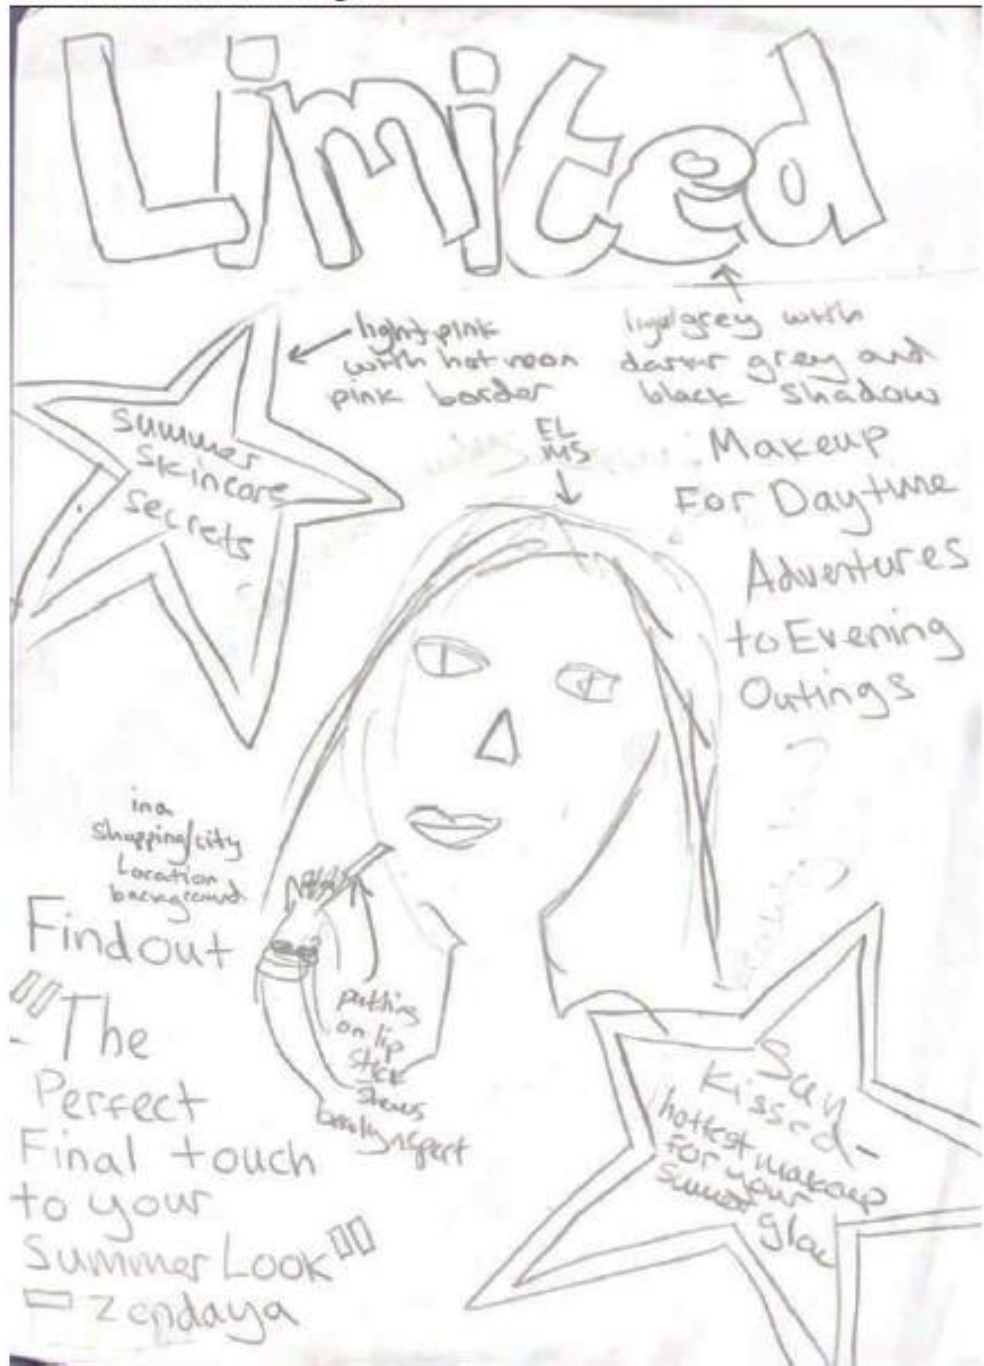 Limited
light pink
with hot neon
pink border
grey with
darker grey and
black shadow
Summer
Skincare
Secrets
EL
MS
Makeup
For Daytime
Adventures
to Evening
Outings
in a
Shopping/city
Location
background
Find out
"The
Perfect
Final touch
to your
Summer Look"
- Zendaya
putting
on lip
stick
shows
beauty aspect
Sun
Kissed-
hottest makeup
for your
summer
glow